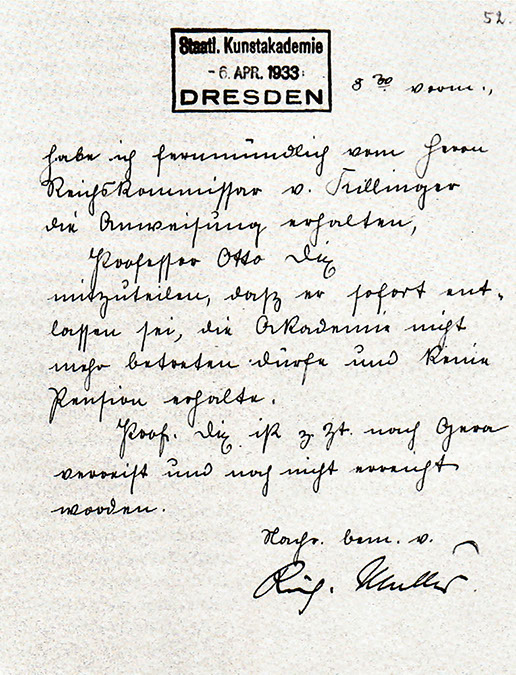 52.
Staatl. Kunstakademie
- 6. APR. 1933
DRESDEN
8 30 vorm.,
habe ich fernmündlich vom Herrn
Reichskommissar v. Killinger
die Anweisung erhalten,
Professor Otto Dix
mitzuteilen, dasz er sofort ent-
lassen sei, die Akademie nicht
mehr betreten dürfe und keine
Pension erhalte.
Prof. Dix ist z. Zt. nach Gera
verreist und noch nicht erreicht
worden.
v.
Rich. Müller.